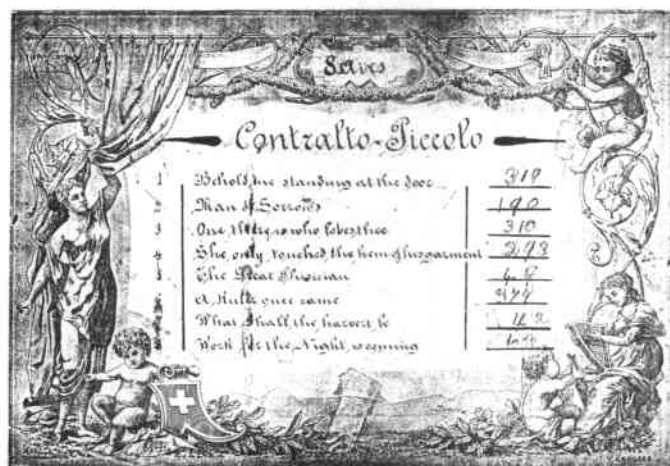 Contralto-Piccolo
1 Behold me standing at the door 319
2 Man of Sorrows 190
3 One there is who loves thee 310
4 She only touched the hem of his garment 293
5 The Great Physician
6 once came
7 What shall the harvest be 112
8 Work for the Night is coming